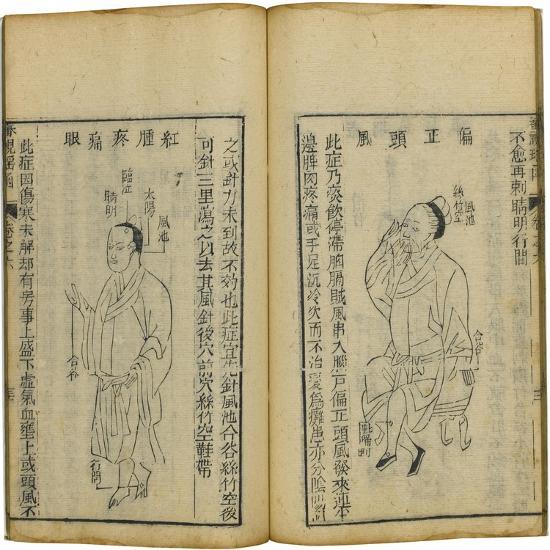 審視瑤函
卷之六
不愈再刺睛明行間
偏正頭風
風池
絲竹空
合谷
此症乃痰飲停滯胸膈賊風串入腦戶偏正頭風發來連半
邊脾肉疼痛或手足沉冷久而不治變為癱串亦分陰
之或針力未到故不効也此症宜先針風池合谷絲竹空後
可針三里瀉之以去其風針後穴前穴絲竹空鞋帶
紅腫疼痛眼
風池
太陽
睛明
臨泣
合谷
行間
此症因傷寒未解却有房事上盛下虛氣血壅上或頭風不
審視瑤函
卷之六